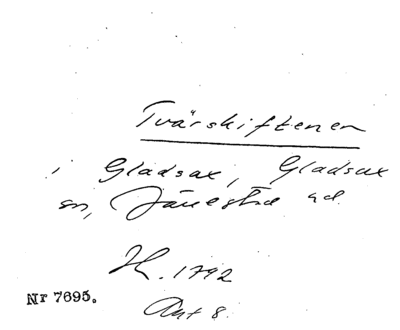 Tvärskiftenen
i Gladsax, Gladsax
sn, Järrestad hd.
H. 1792
Nr 7695.
Akt 8.